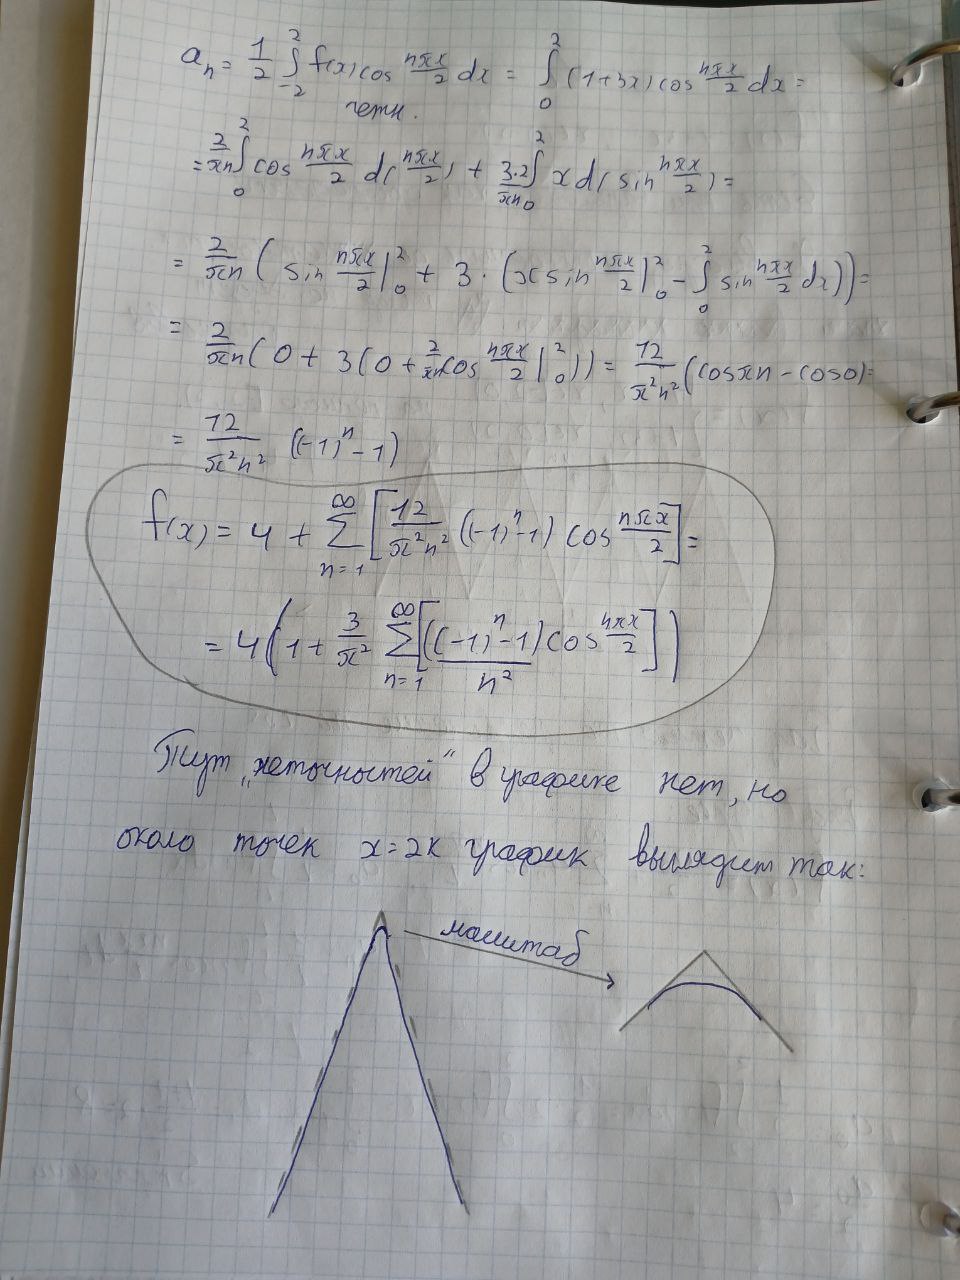 aₙ = 1/2 ∫₋₂² f(x) cos nπx/2 dx = ∫₀² (1+3x) cos nπx/2 dx =
четн.
= 2/πn ∫₀² cos nπx/2 d(nπx/2) + 3·2/πn ∫₀² x d(sin nπx/2) =
= 2/πn ( sin nπx/2 |₀² + 3 · (x sin nπx/2 |₀² - ∫₀² sin nπx/2 dx)) =
= 2/πn ( 0 + 3 (0 + 2/πn cos nπx/2 |₀²)) = 12/π²n² (cos πn - cos 0) =
= 12/π²n² ((-1)ⁿ - 1)
f(x) = 4 + ∑ₙ₌₁^∞ [12/π²n² ((-1)ⁿ-1) cos nπx/2] =
= 4 (1 + 3/π² ∑ₙ₌₁^∞ [((-1)ⁿ-1)/n² cos nπx/2])
Тут „неточностей“ в графике нет, но
около точек x=2k график выглядит так:
масштаб